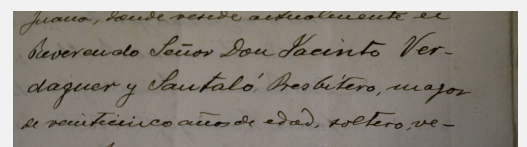 Juana, donde resede actualmente el
Reverendo Señor Don Jacinto Ver-
daguer y Santaló, Presbítero, mayor
de veinticinco años de edad, soltero, ve-